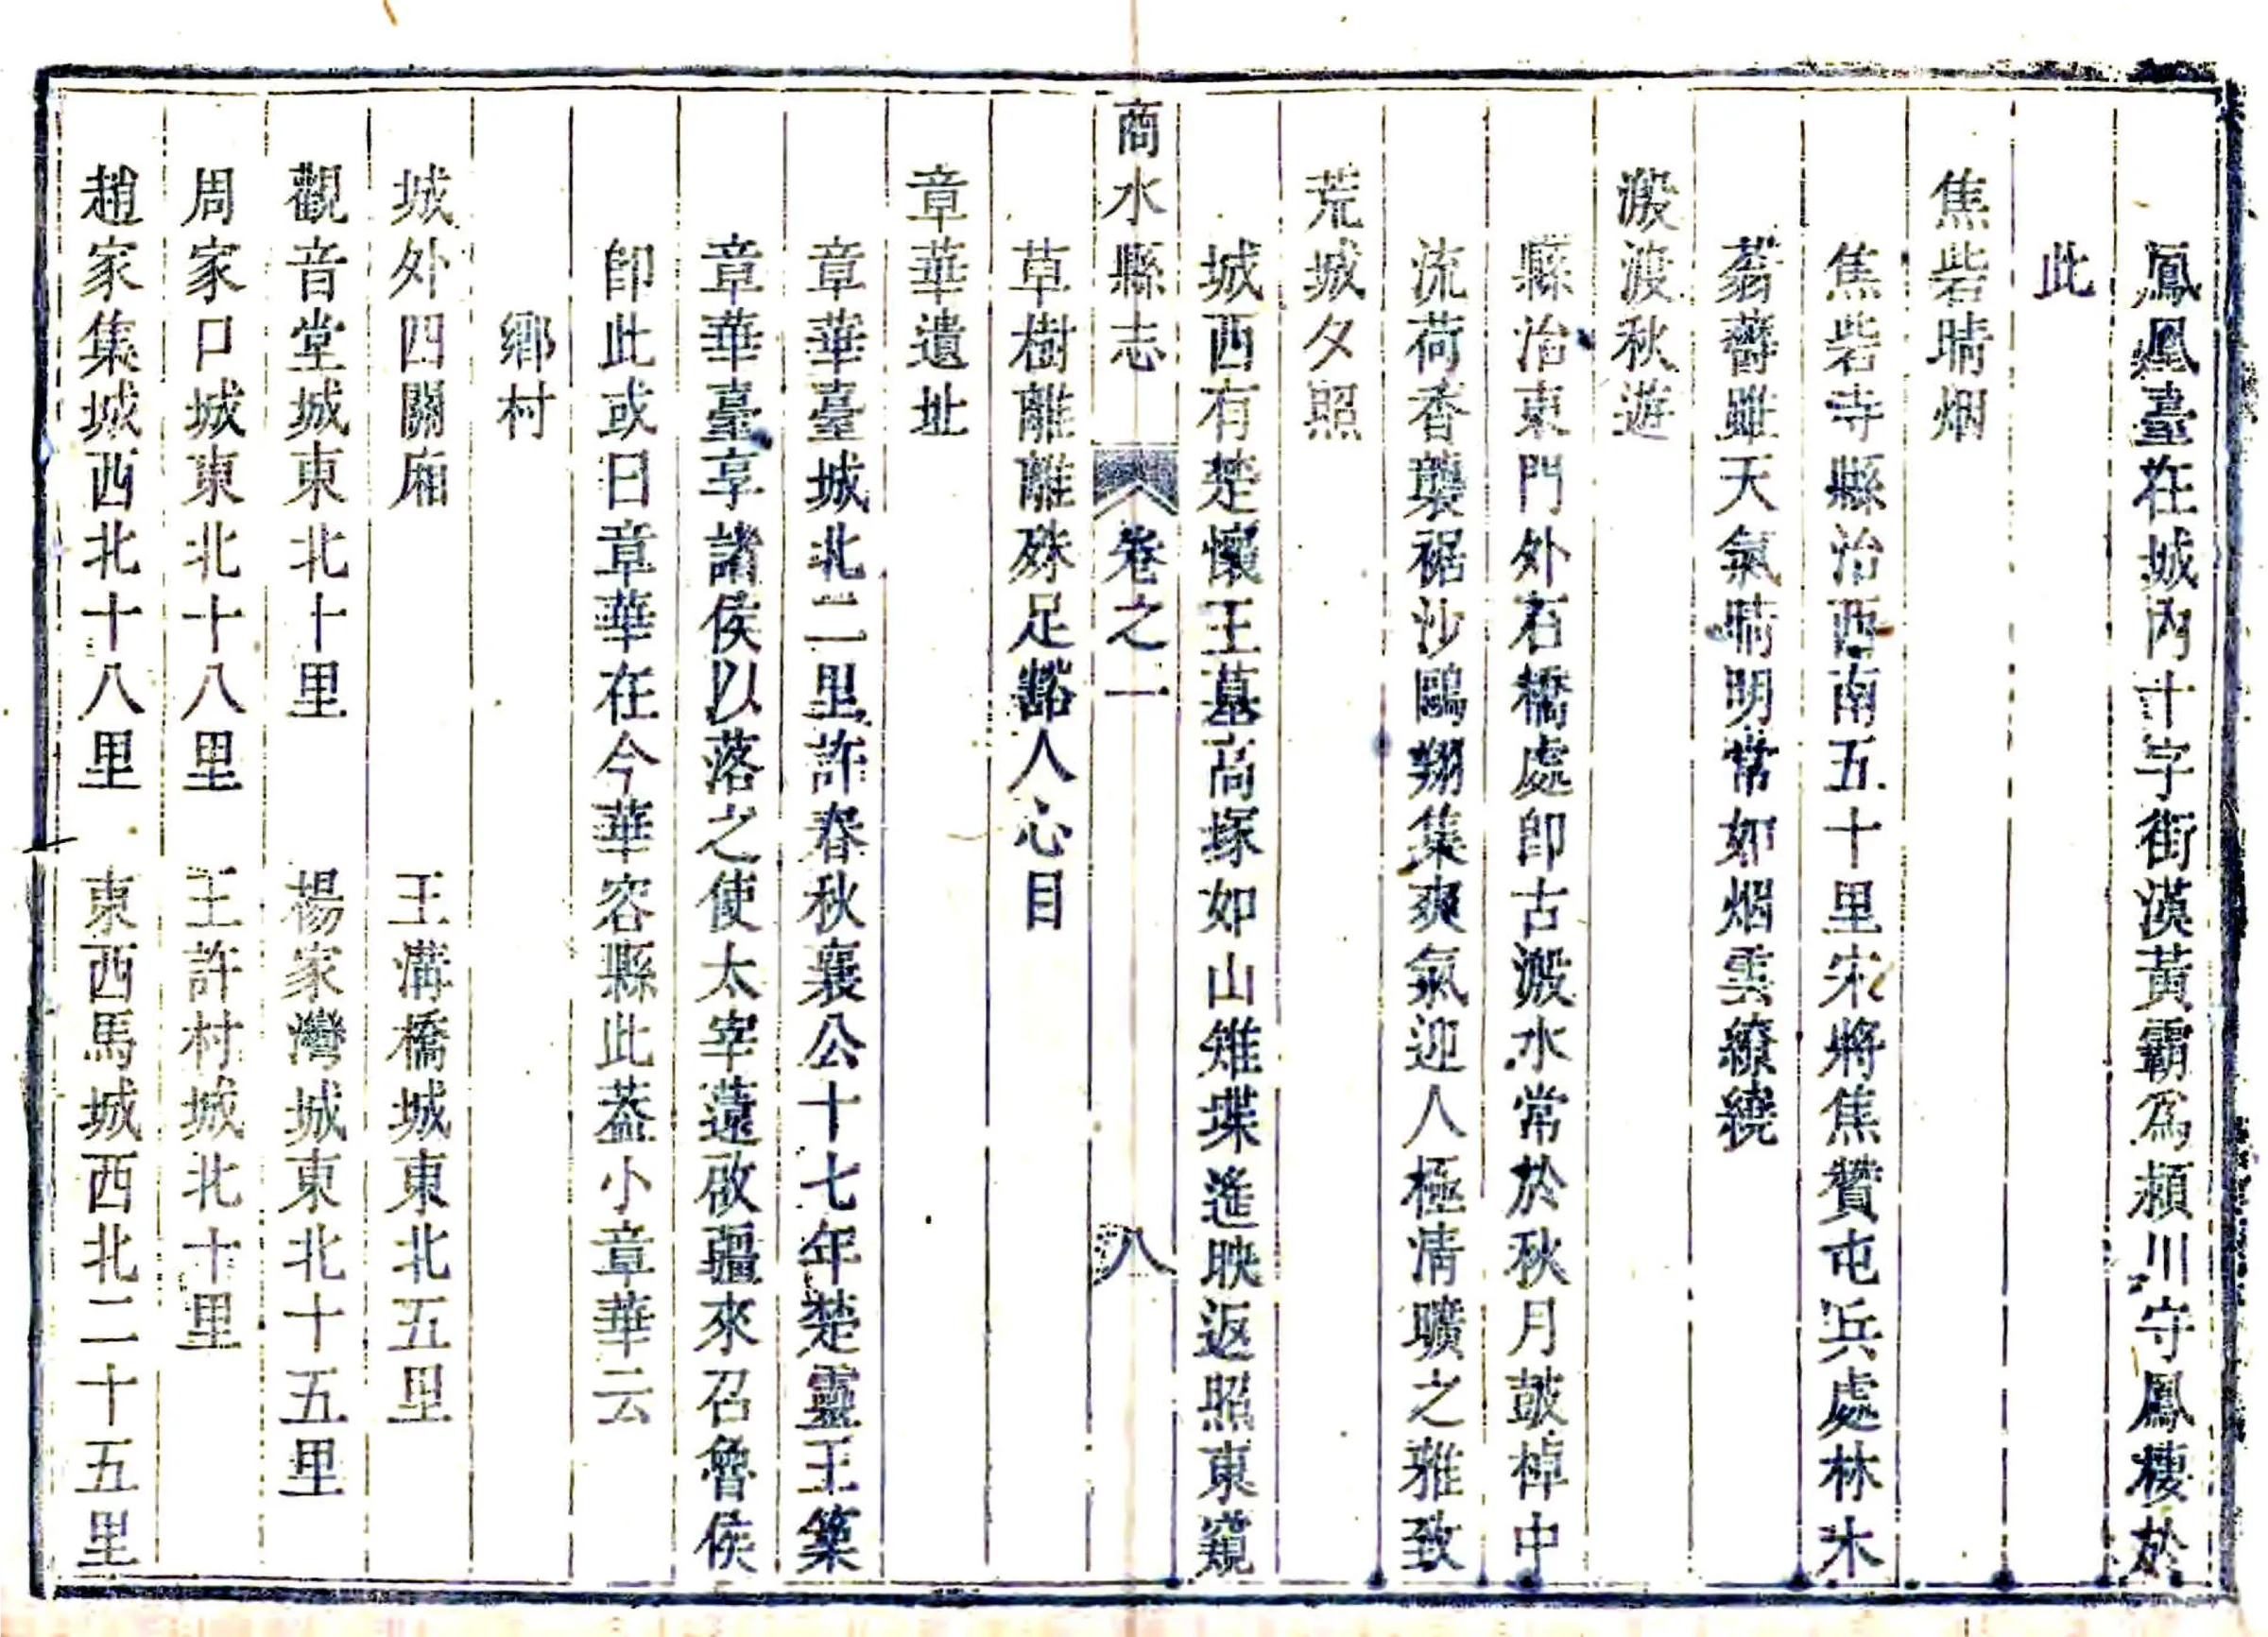 鳳凰臺在城內十字街漢黃霸爲潁川守鳳棲於
此
焦砦晴烟
焦砦寺縣治西南五十里宋將焦贊屯兵處林木
蓊薈雖天氣晴明常如烟雲繚繞
溵渡秋遊
縣治東門外石橋處卽古溵水常於秋月鼓棹中
流荷香襲裾沙鷗翔集爽氣迎人極淸曠之雅致
荒城夕照
城西有楚懷王墓高塚如山雉堞遙映返照東窺
商水縣志 卷之一 八
草樹離離殊足豁人心目
章華遺址
章華臺城北二里許春秋襄公十七年楚靈王築
章華臺享諸侯以落之使太宰薳啟疆來召魯侯
卽此或曰章華在今華容縣此葢小章華云
鄉村
城外四關廂 王溝橋城東北五里
觀音堂城東北十里 楊家灣城東北十五里
周家口城東北十八里 王許村城北十里
趙家集城西北十八里 東西馬城西北二十五里